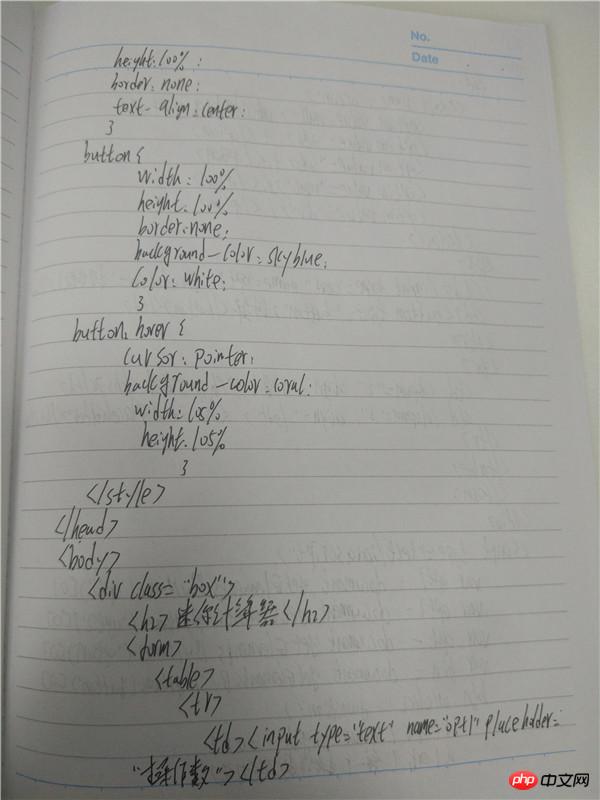 No.
Date
height:100%;
border:none;
text-align:center;
}
button{
width:100%
height:100%
border:none;
background-color:skyblue;
color:white;
}
button:hover{
cursor:pointer;
background-color:coral;
width:105%
height:105%
}
</style>
</head>
<body>
<div class="box">
<h2>迷你计算器</h2>
<form>
<table>
<tr>
<td><input type="text" name="opt1" placeholder=
"操作数"></td>
php 中文网